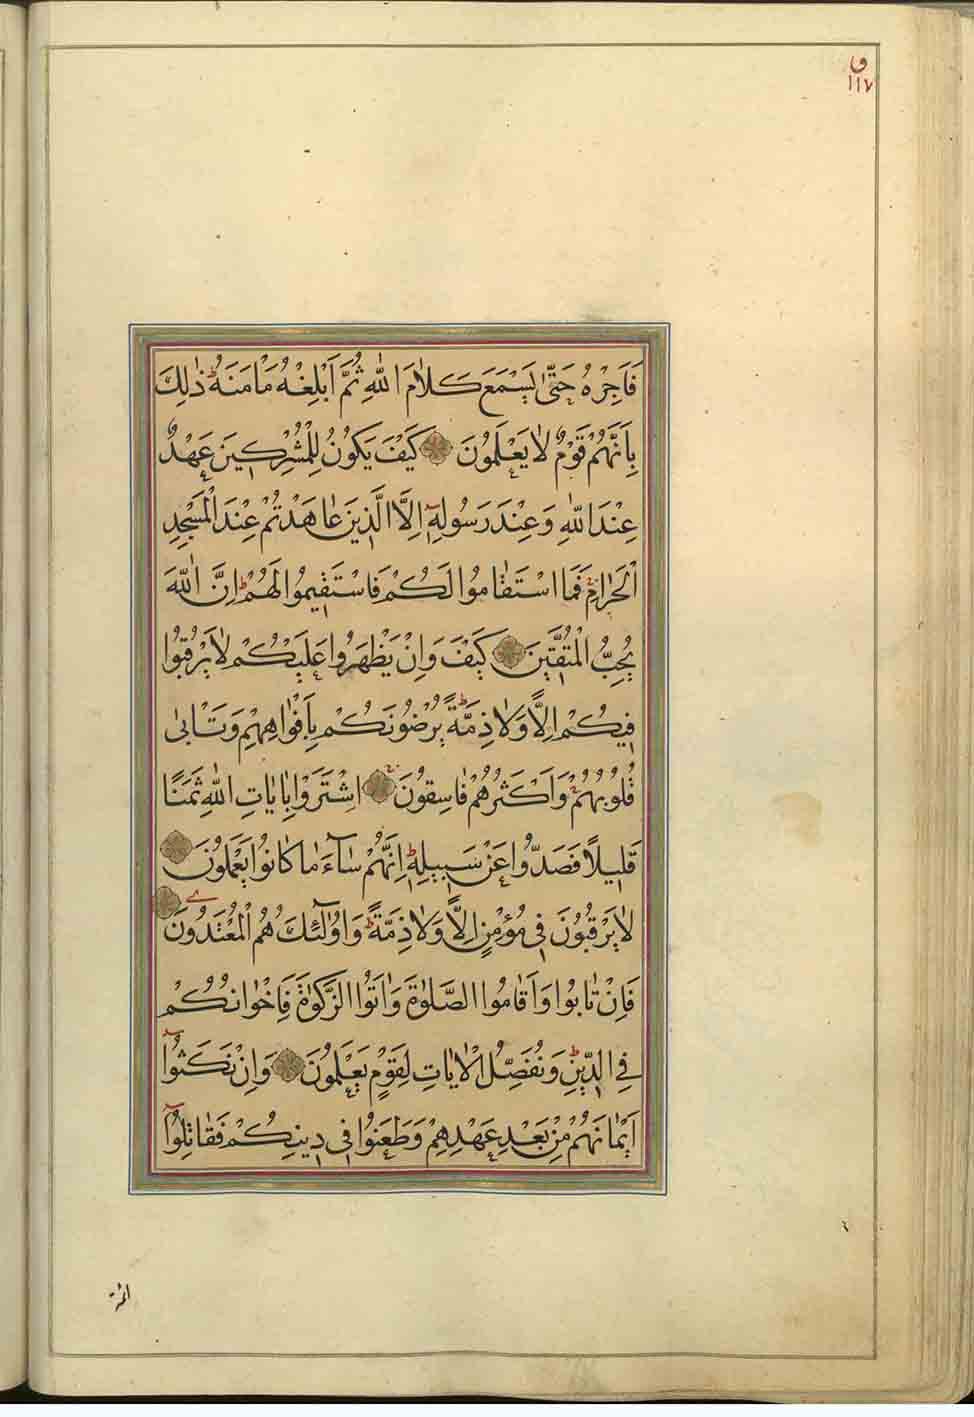 ق
١١٧
فَاَجِرْهُ حَتّٰى يَسْمَعَ كَلَامَ اللّٰهِ ثُمَّ اَبْلِغْهُ مَاْمَنَهُ ط ذٰلِكَ
بِاَنَّهُمْ قَوْمٌ لَا يَعْلَمُونَ كَيْفَ يَكُونُ لِلْمُشْرِكِينَ عَهْدٌ
عِنْدَ اللّٰهِ وَعِنْدَ رَسُولِهٖٓ اِلَّا الَّذِينَ عَاهَدْتُمْ عِنْدَ الْمَسْجِدِ
الْحَرَامِ فَمَا اسْتَقَامُوا لَكُمْ فَاسْتَقِيمُوا لَهُمْ ط اِنَّ اللّٰهَ
يُحِبُّ الْمُتَّقِينَ كَيْفَ وَاِنْ يَظْهَرُوا عَلَيْكُمْ لَا يَرْقُبُوا
فِيكُمْ اِلًّا وَلَا ذِمَّةً ط يُرْضُونَكُمْ بِاَفْوَاهِهِمْ وَتَاْبٰى
قُلُوبُهُمْ وَاَكْثَرُهُمْ فَاسِقُونَ اِشْتَرَوْا بِاٰيَاتِ اللّٰهِ ثَمَنًا
قَلِيلًا فَصَدُّوا عَنْ سَبِيلِهٖ ط اِنَّهُمْ سَآءَ مَا كَانُوا يَعْمَلُونَ
لَا يَرْقُبُونَ فِي مُؤْمِنٍ اِلًّا وَلَا ذِمَّةً ط وَاُولٰٓئِكَ هُمُ الْمُعْتَدُونَ
فَاِنْ تَابُوا وَاَقَامُوا الصَّلٰوةَ وَاٰتَوُا الزَّكٰوةَ فَاِخْوَانُكُمْ
فِي الدِّينِ ط وَنُفَصِّلُ الْاٰيَاتِ لِقَوْمٍ يَعْلَمُونَ وَاِنْ نَكَثُوٓا
اَيْمَانَهُمْ مِنْ بَعْدِ عَهْدِهِمْ وَطَعَنُوا فِي دِينِكُمْ فَقَاتِلُوٓا